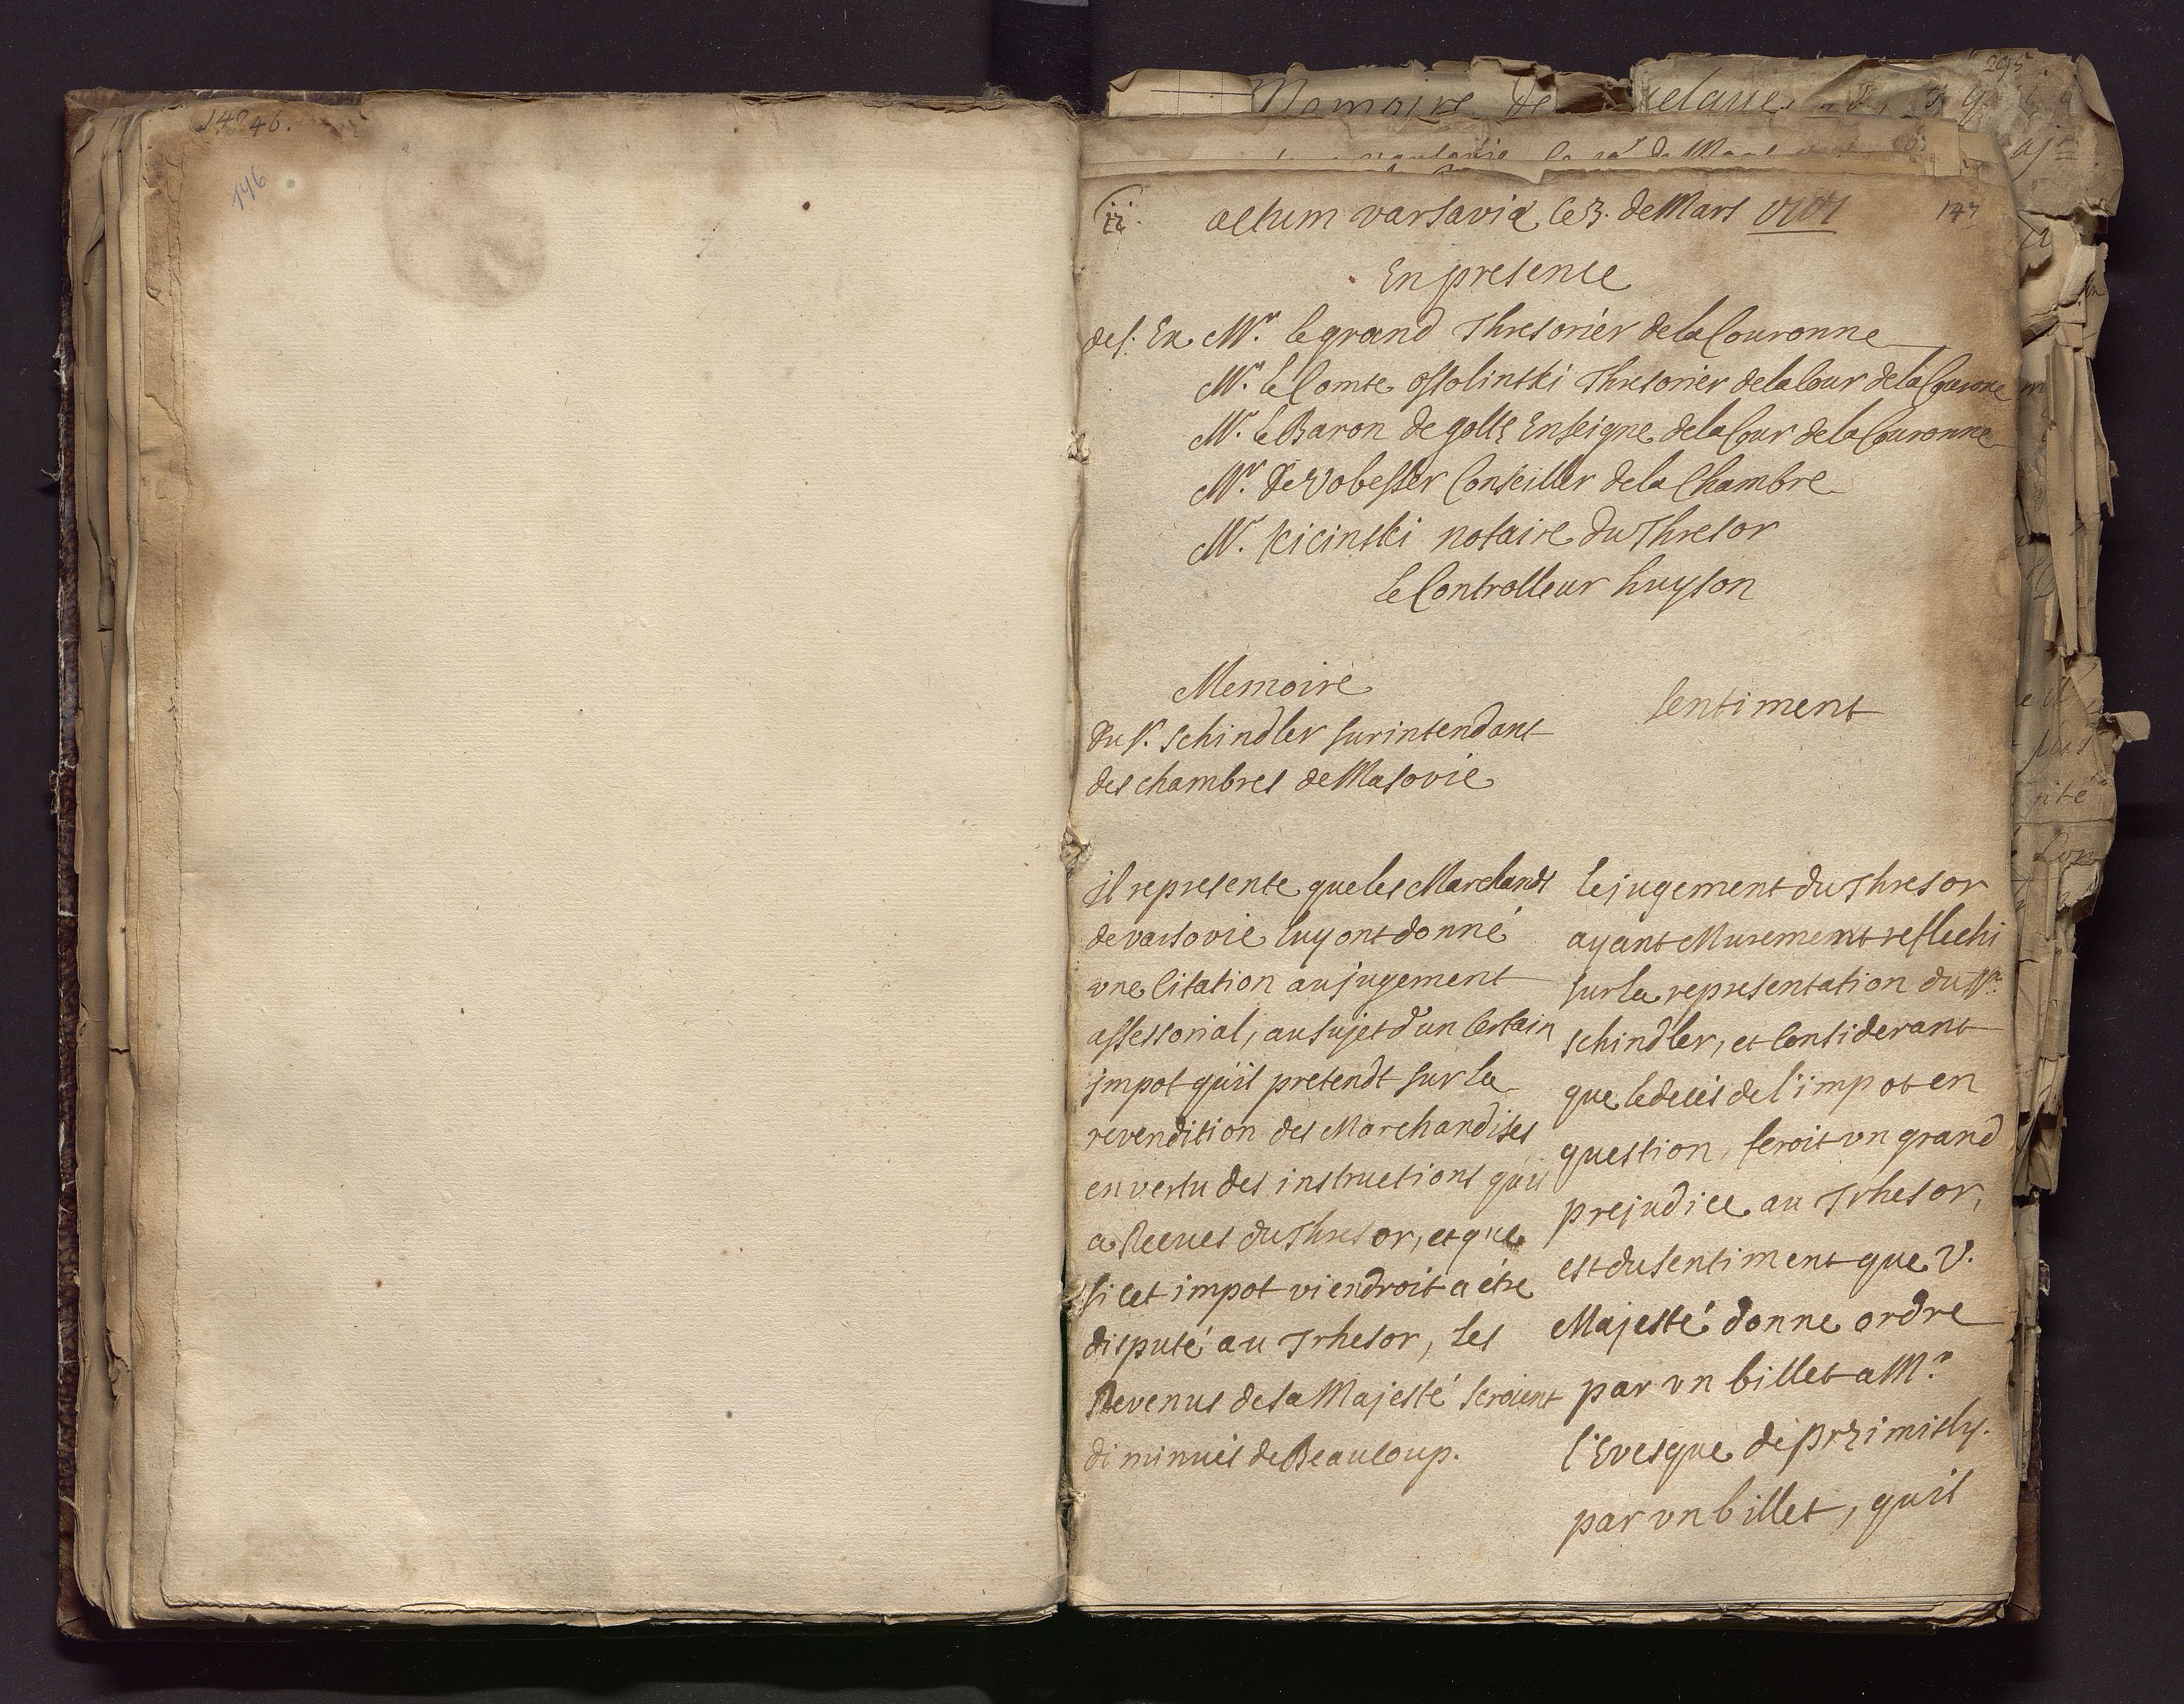 146.
146
205
Memoire de
le 12 de Mars
12.
actum varsaviæ le 3. de Mars
147
En presence
de s: Ex Mr. le grand Thresorier de la Couronne
Mr. le Comte ossolinski Thresorier de la Cour de la Couronne
Mr. le Baron de golts Enseigne de la Cour de la Couronne
Mr. de Vobesser Conseiller de la Chambre
Mr. Kicinski notaire du Thresor
Le Controlleur huyson
Memoire
du sr. Schindler surintendant
des chambres de Masovie
il represente que les Marchands
de varsovie luy ont donné
vne Citation au jugement
assessorial, au sujet d'un Certain
impot qu'il pretendt sur la
revendition des Marchandises
en vertu des instructions qu'il
a Recues du Thresor, et que
si cet impot viendroit a étre
disputé au Trhesor, les
Revenus de sa Majesté seroient
diminués de Beaucoup.
sentiment
le jugement du Thresor
ayant Murement reflechi
sur la representation du Sr.
schindler, et Considerant
que le decés de l'impot en
question, seroit vn grand
prejudice au Trhesor,
est du sentiment que V.
Majesté donne ordre
par vn billet a Mr.
l'Evesque de przimisly.
par vn billet, qu'il